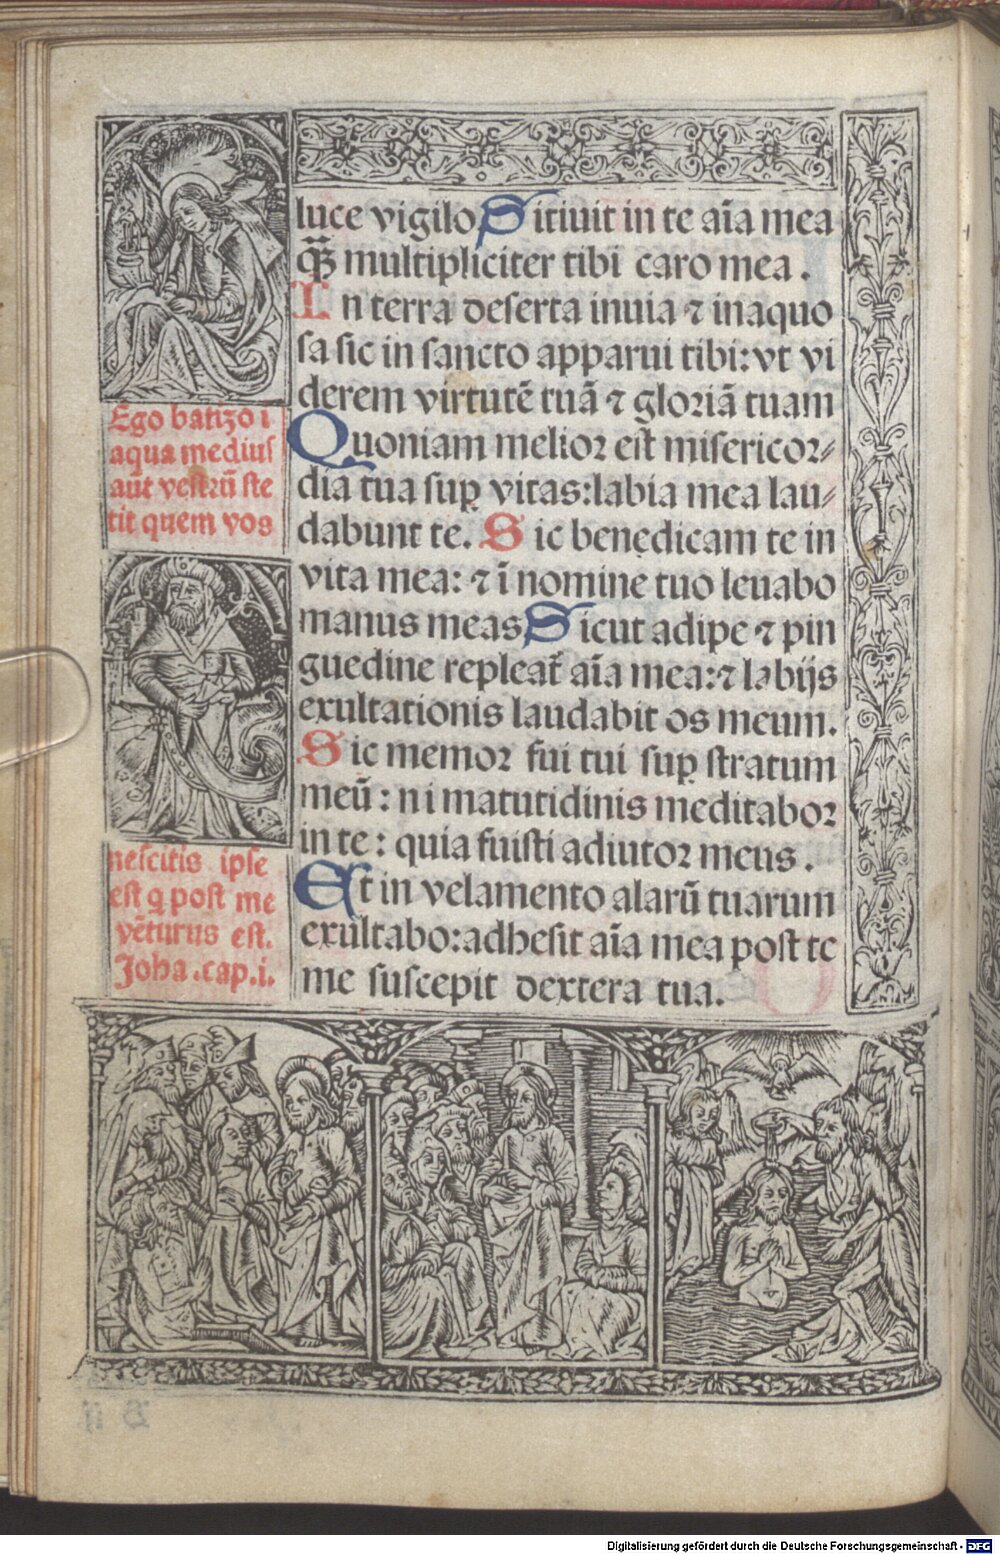 luce vigilo Sitiuit in te aĩa mea
q̃ȝ multipliciter tibi caro mea .
In terra deserta inuia ⁊ inaquo
sa sic in sancto apparui tibi: vt vi
derem virtutẽ tuã ⁊ gloriã tuam
Quoniam melior est misericor⸗
dia tua suꝑ vitas: labia mea lau⸗
dabunt te. Sic benedicam te in
vita mea: ⁊ ĩ nomine tuo leuabo
manus meas Sicut adipe ⁊ pin
guedine repleat̃ aĩa mea: ⁊ labijs
exultationis laudabit os meum.
Sic memor fui tui suꝑ stratum
meũ : ni matutidinis meditabor
in te : quia fuisti adiutor meus .
Et in velamento alarũ tuarum
exultabo: adhesit aĩa mea post te
me suscepit dextera tua.
Ego batizo i
aqua medius
aut vestrũ ste
tit quem vos
nescitis ipse
est q post me
vẽturus est.
Joha .cap.i.
B ij
Digitalisierung gefördert durch die Deutsche Forschungsgemeinschaft - DFG